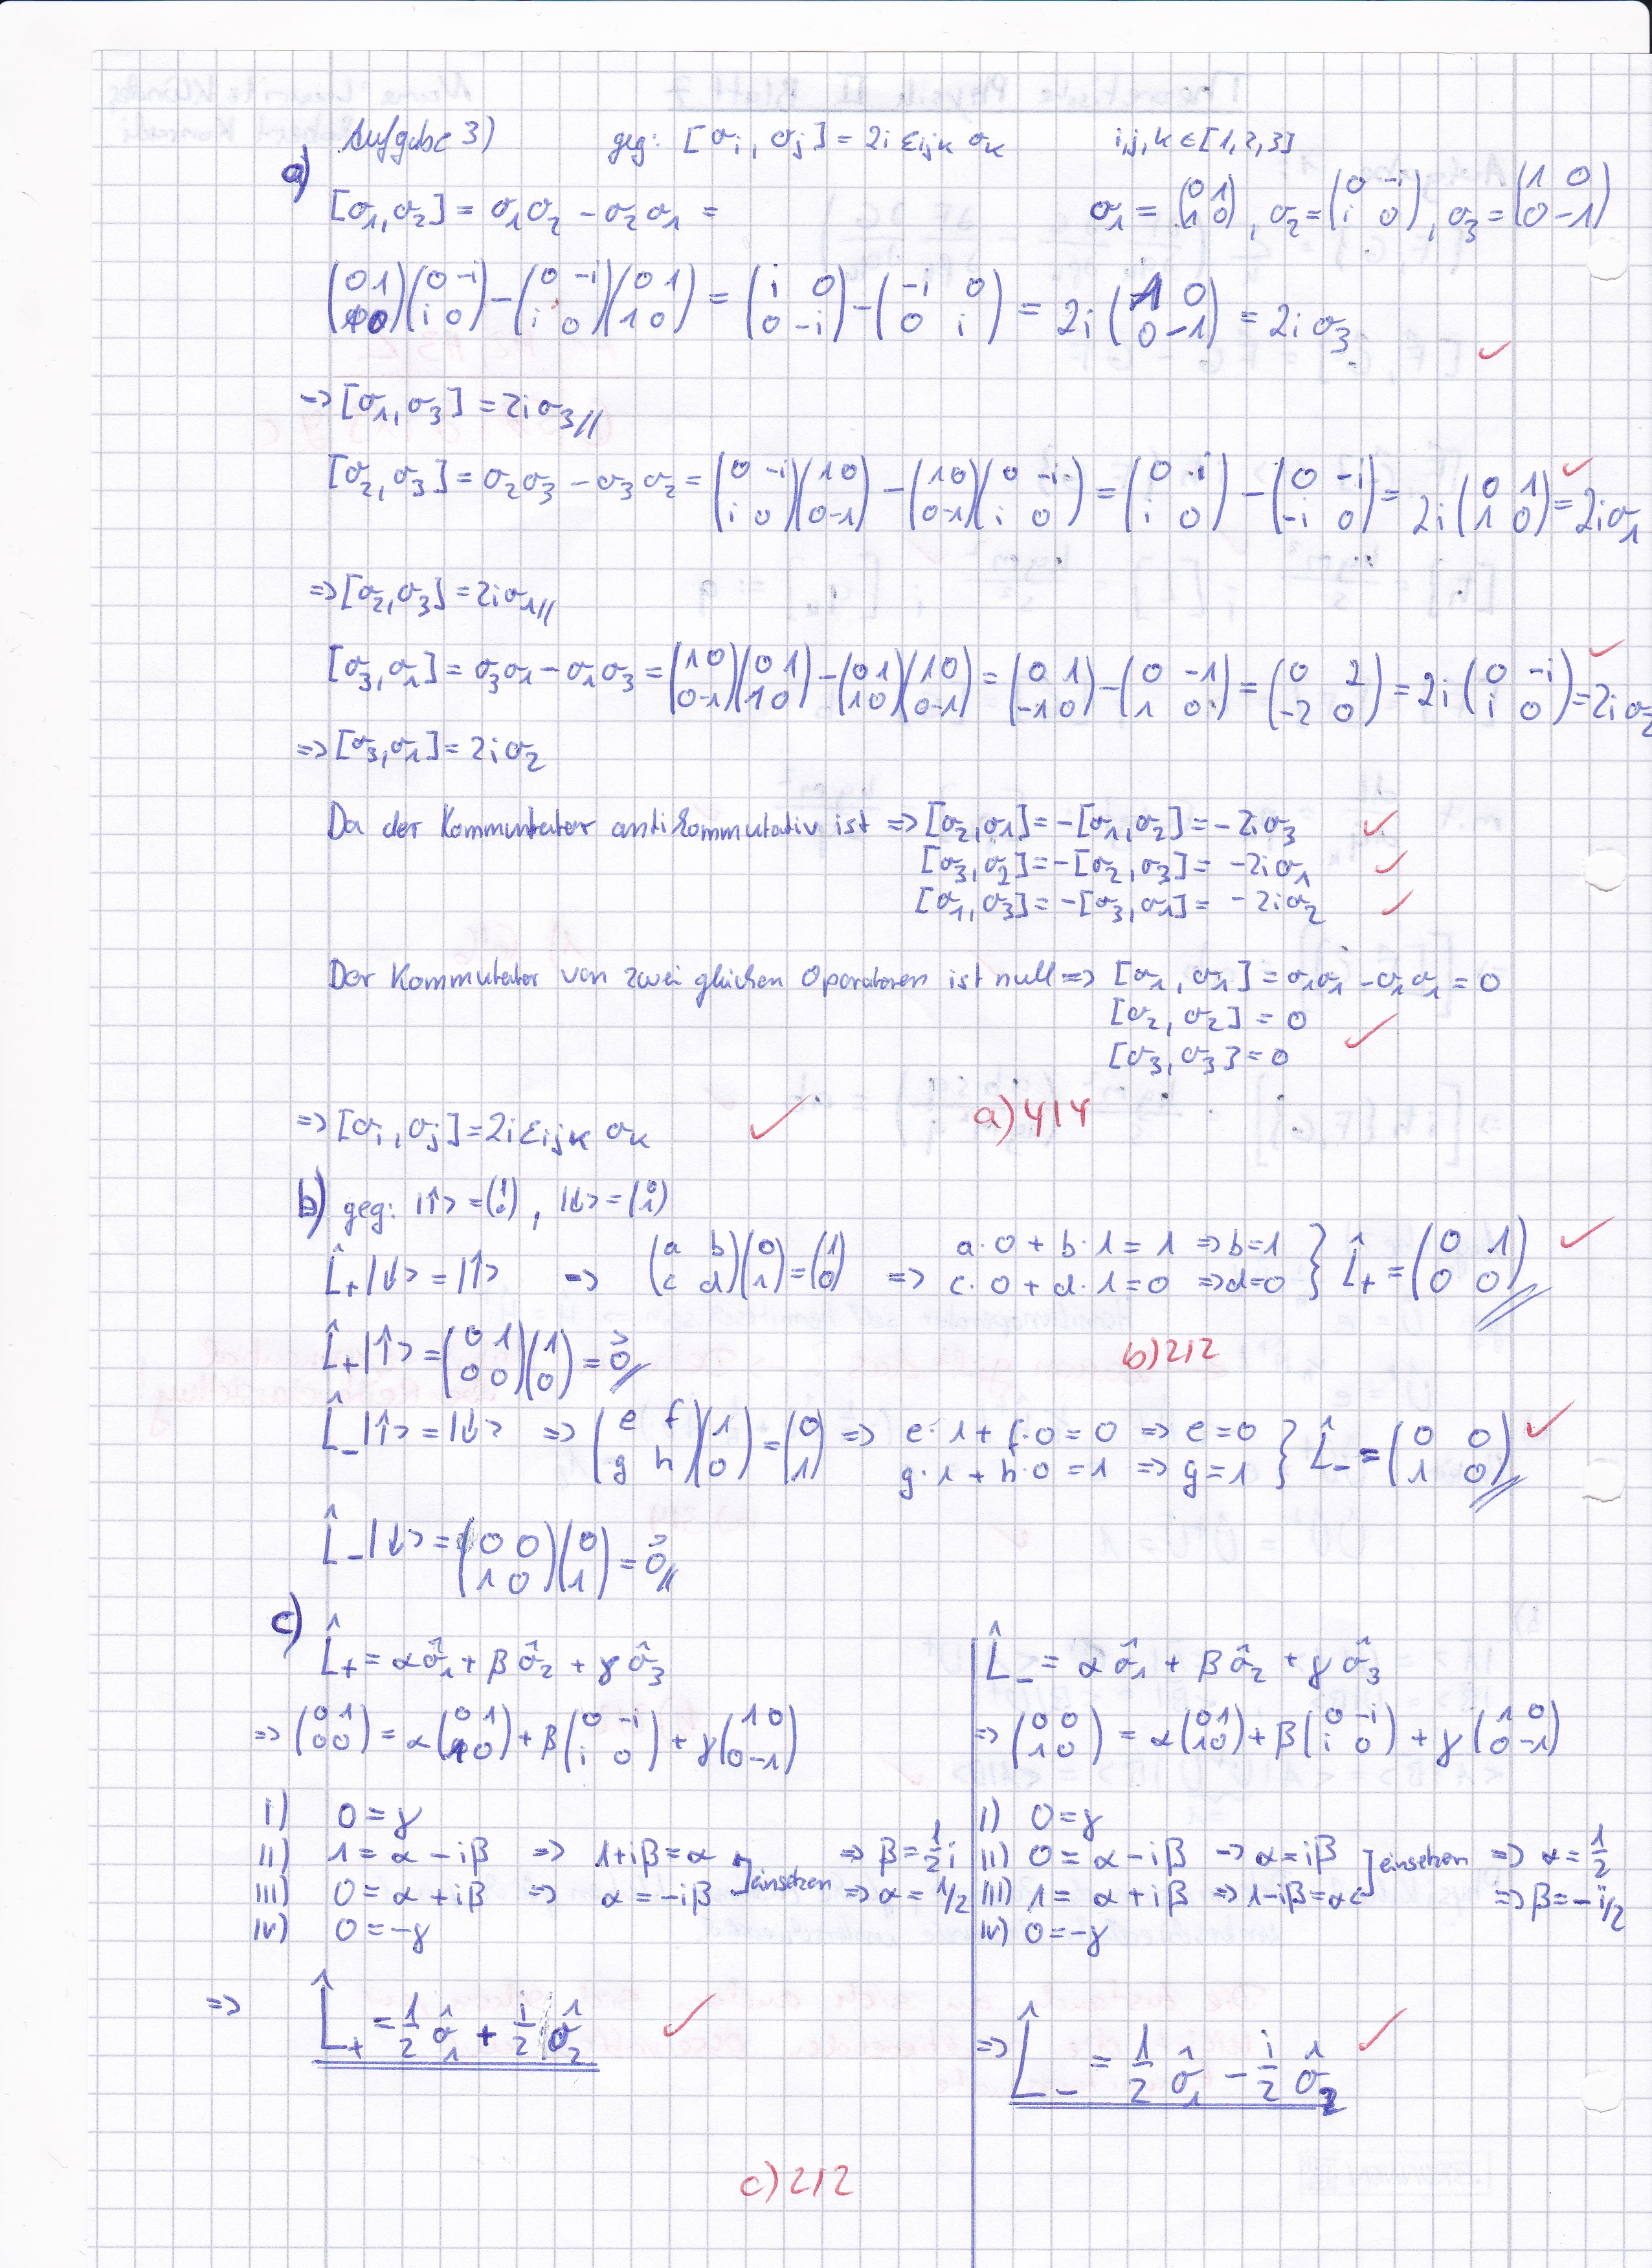 Aufgabe 3) geg: [σi, σj] = 2i εijk σk i,j,k ∈ [1,2,3]
a) [σ1, σ2] = σ1σ2 − σ2σ1 = σ1 = (0 1; 1 0), σ2 = (0 −i; i 0), σ3 = (1 0; 0 −1)
(0 1; 1 0)(0 −i; i 0) − (0 −i; i 0)(0 1; 1 0) = (i 0; 0 −i) − (−i 0; 0 i) = 2i (1 0; 0 −1) = 2i σ3 ✓
→ [σ1, σ3] = 2iσ3 //
[σ2, σ3] = σ2σ3 − σ3σ2 = (0 −i; i 0)(1 0; 0 −1) − (1 0; 0 −1)(0 −i; i 0) = (0 i; i 0) − (0 −i; −i 0) = 2i (0 1; 1 0) = 2iσ1 ✓
⇒ [σ2, σ3] = 2iσ1 //
[σ3, σ1] = σ3σ1 − σ1σ3 = (1 0; 0 −1)(0 1; 1 0) − (0 1; 1 0)(1 0; 0 −1) = (0 1; −1 0) − (0 −1; 1 0) = (0 2; −2 0) = 2i (0 −i; i 0) = 2iσ2 ✓
⇒ [σ3, σ1] = 2iσ2
Da der Kommutator antikommutativ ist ⇒ [σ2, σ1] = −[σ1, σ2] = −2iσ3 ✓
[σ3, σ2] = −[σ2, σ3] = −2iσ1 ✓
[σ1, σ3] = −[σ3, σ1] = −2iσ2 ✓
Der Kommutator von zwei gleichen Operatoren ist null ⇒ [σ1, σ1] = σ1σ1 − σ1σ1 = 0
[σ2, σ2] = 0 ✓
[σ3, σ3] = 0
⇒ [σi, σj] = 2i εijk σk ✓ a) 4/4
b) geg: |↑> = (1; 0), |↓> = (0; 1)
L̂+|↓> = |↑> → (a b; c d)(0; 1) = (1; 0) ⇒ a·0 + b·1 = 1 ⇒ b=1
c·0 + d·1 = 0 ⇒ d=0 } L̂+ = (0 1; 0 0) ✓
L̂+|↑> = (0 1; 0 0)(1; 0) = 0⃗ // b) 2/2
L̂−|↑> = |↓> ⇒ (e f; g h)(1; 0) = (0; 1) ⇒ e·1 + f·0 = 0 ⇒ e=0
g·1 + h·0 = 1 ⇒ g=1 } L̂− = (0 0; 1 0) ✓
L̂−|↓> = (0 0; 1 0)(0; 1) = 0⃗ //
c) L̂+ = α σ̂1 + β σ̂2 + γ σ̂3
⇒ (0 1; 0 0) = α (0 1; 1 0) + β (0 −i; i 0) + γ (1 0; 0 −1)
I) 0 = γ
II) 1 = α − iβ ⇒ 1+iβ = α ⇒ β = 1/2 i
III) 0 = α + iβ ⇒ α = −iβ einsetzen ⇒ α = 1/2
IV) 0 = −γ
⇒ L̂+ = 1/2 σ̂1 + i/2 σ̂2 ✓
L̂− = α σ̂1 + β σ̂2 + γ σ̂3
⇒ (0 0; 1 0) = α (0 1; 1 0) + β (0 −i; i 0) + γ (1 0; 0 −1)
I) 0 = γ
II) 0 = α − iβ → α = iβ einsetzen ⇒ α = 1/2
III) 1 = α + iβ ⇒ 1−iβ = α ⇒ β = −i/2
IV) 0 = −γ
⇒ L̂− = 1/2 σ̂1 − i/2 σ̂2 ✓
c) 2/2